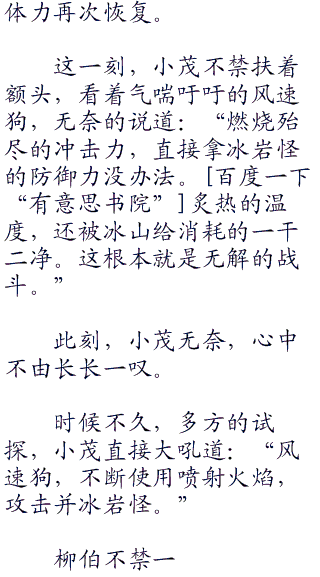 体力再次恢复。
这一刻，小茂不禁扶着
额头，看着气喘吁吁的风速
狗，无奈的说道：“燃烧殆
尽的冲击力，直接拿冰岩怪
的防御力没办法。[百度一下
“有意思书院”]炙热的温
度，还被冰山给消耗的一干
二净。这根本就是无解的战
斗。”
此刻，小茂无奈，心中
不由长长一叹。
时候不久，多方的试
探，小茂直接大吼道：“风
速狗，不断使用喷射火焰，
攻击并冰岩怪。”
柳伯不禁一